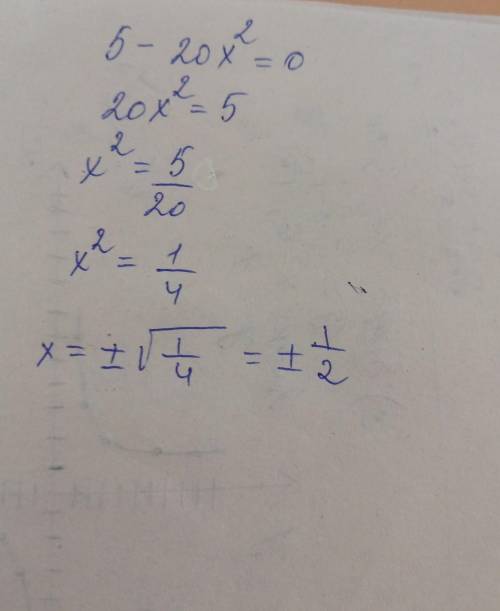 5 - 20x² = 0
20x² = 5
x² = 5/20
x² = 1/4
x = ±√(1/4) = ± 1/2